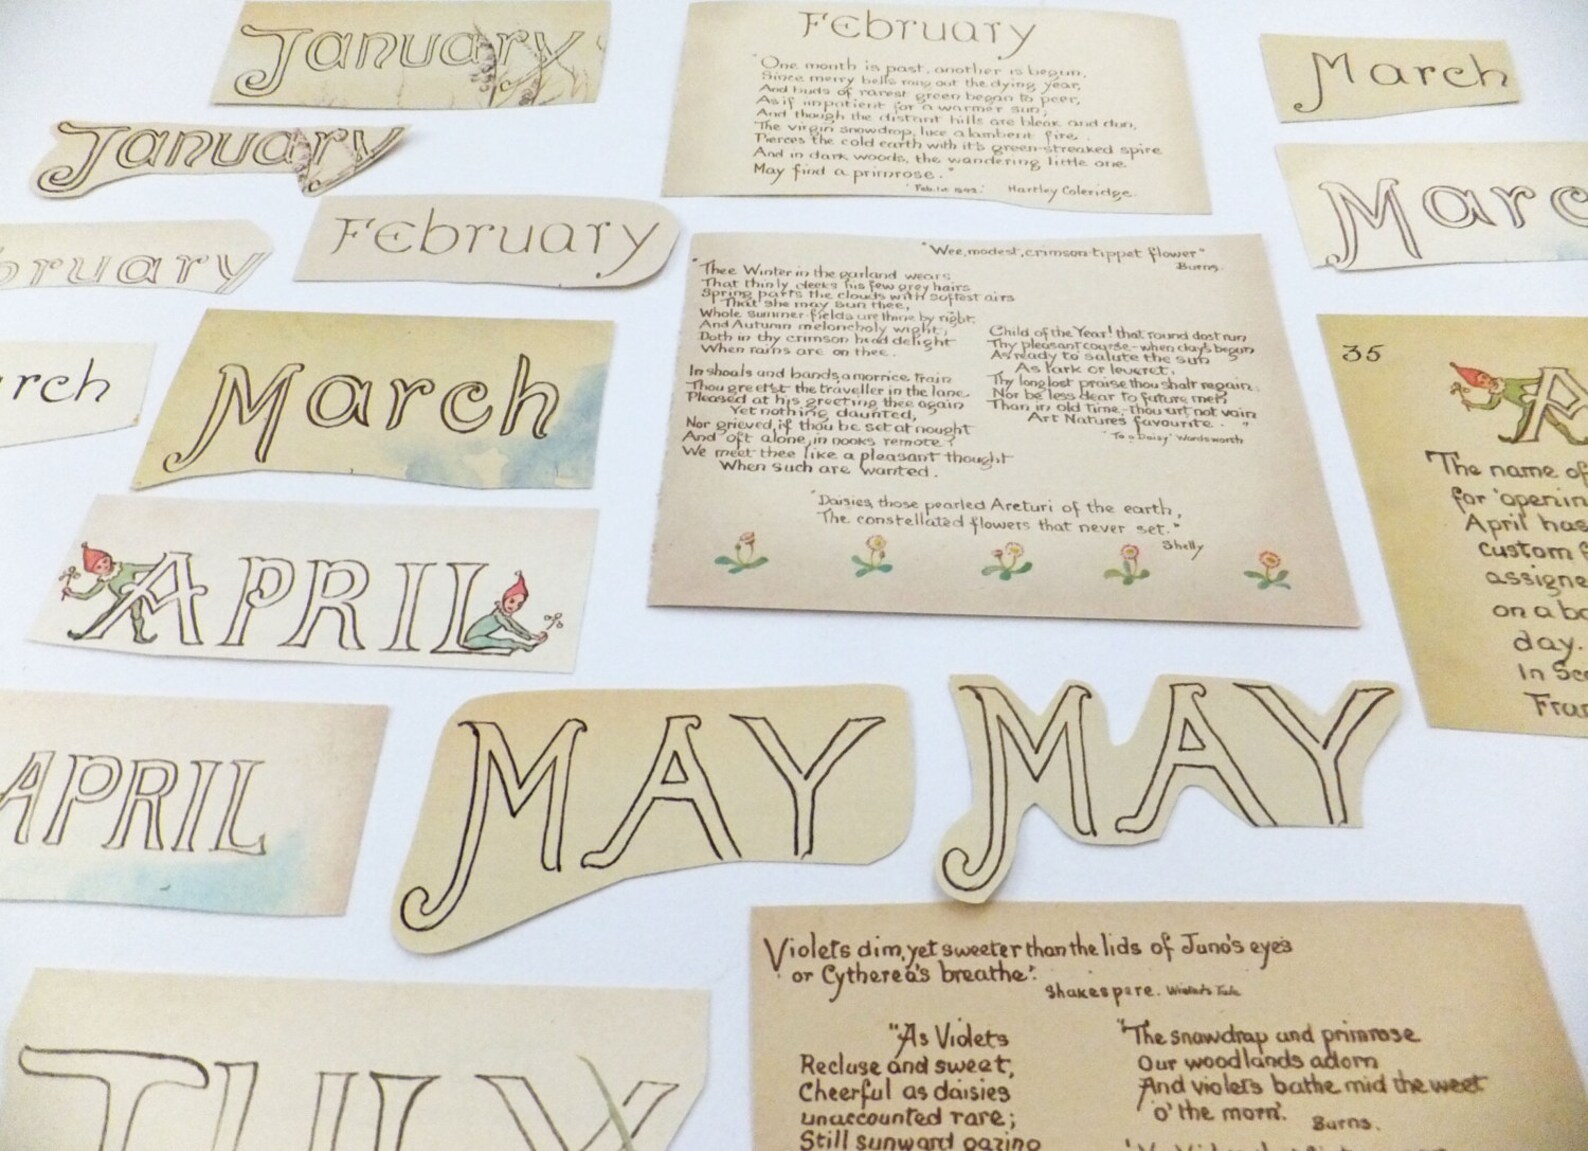 January
February
"One month is past, another is begun,
Since merry bells rung out the dying year,
And buds of rarest green began to peer,
As if impatient for a warmer sun;
And though the distant hills are bleak and dun,
The virgin snowdrop, like a lambent fire,
Pierces the cold earth with it's green-streaked spire
And in dark woods, the wandering little one
May find a primrose."
Hartley Coleridge.
March
January
March
bruary
February
"Wee, modest, crimson-tippet flower"
Burns
"Thee Winter in the garland wears
That thinly decks his few grey hairs
Spring parts the clouds with softest airs
That she may sun thee,
Whole summer-fields are thine by right,
And Autumn melancholy wight,
Doth in thy crimson head delight
When rains are on thee.
In shoals and bands, a morrice train
Thou greet'st the traveller in the lane
Pleased at his greeting thee again
Yet nothing daunted,
Nor grieved, if thou be set at nought
And oft alone, in nooks remote
We meet thee like a pleasant thought
When such are wanted.
Child of the Year! that round dost run
Thy pleasant course - when day's begun
As ready to salute the sun
As lark or leveret,
Thy long lost praise thou shalt regain;
Nor be less dear to future men
Than in old time, - thou art not vain
Art Nature's favourite. "
"To a Daisy" Wordsworth
"Daisies, those pearled Arcturi of the earth,
The constellated flowers that never set."
Shelly
rch
March
35
A
The name of
for 'openin
April has
custom f
assigne
on a bo
day.
In Sco
Fran
APRIL
APRIL
MAY
MAY
JULY
Violets dim, yet sweeter than the lids of Juno's eyes
or Cytherea's breathe".
Shakespere. Winter's Tale
"As Violets
Recluse and sweet,
Cheerful as daisies
unaccounted rare;
Still sunward gazing
"The snowdrop and primrose
Our woodlands adorn
And violets bathe mid the weet
o' the morn'.
Burns.